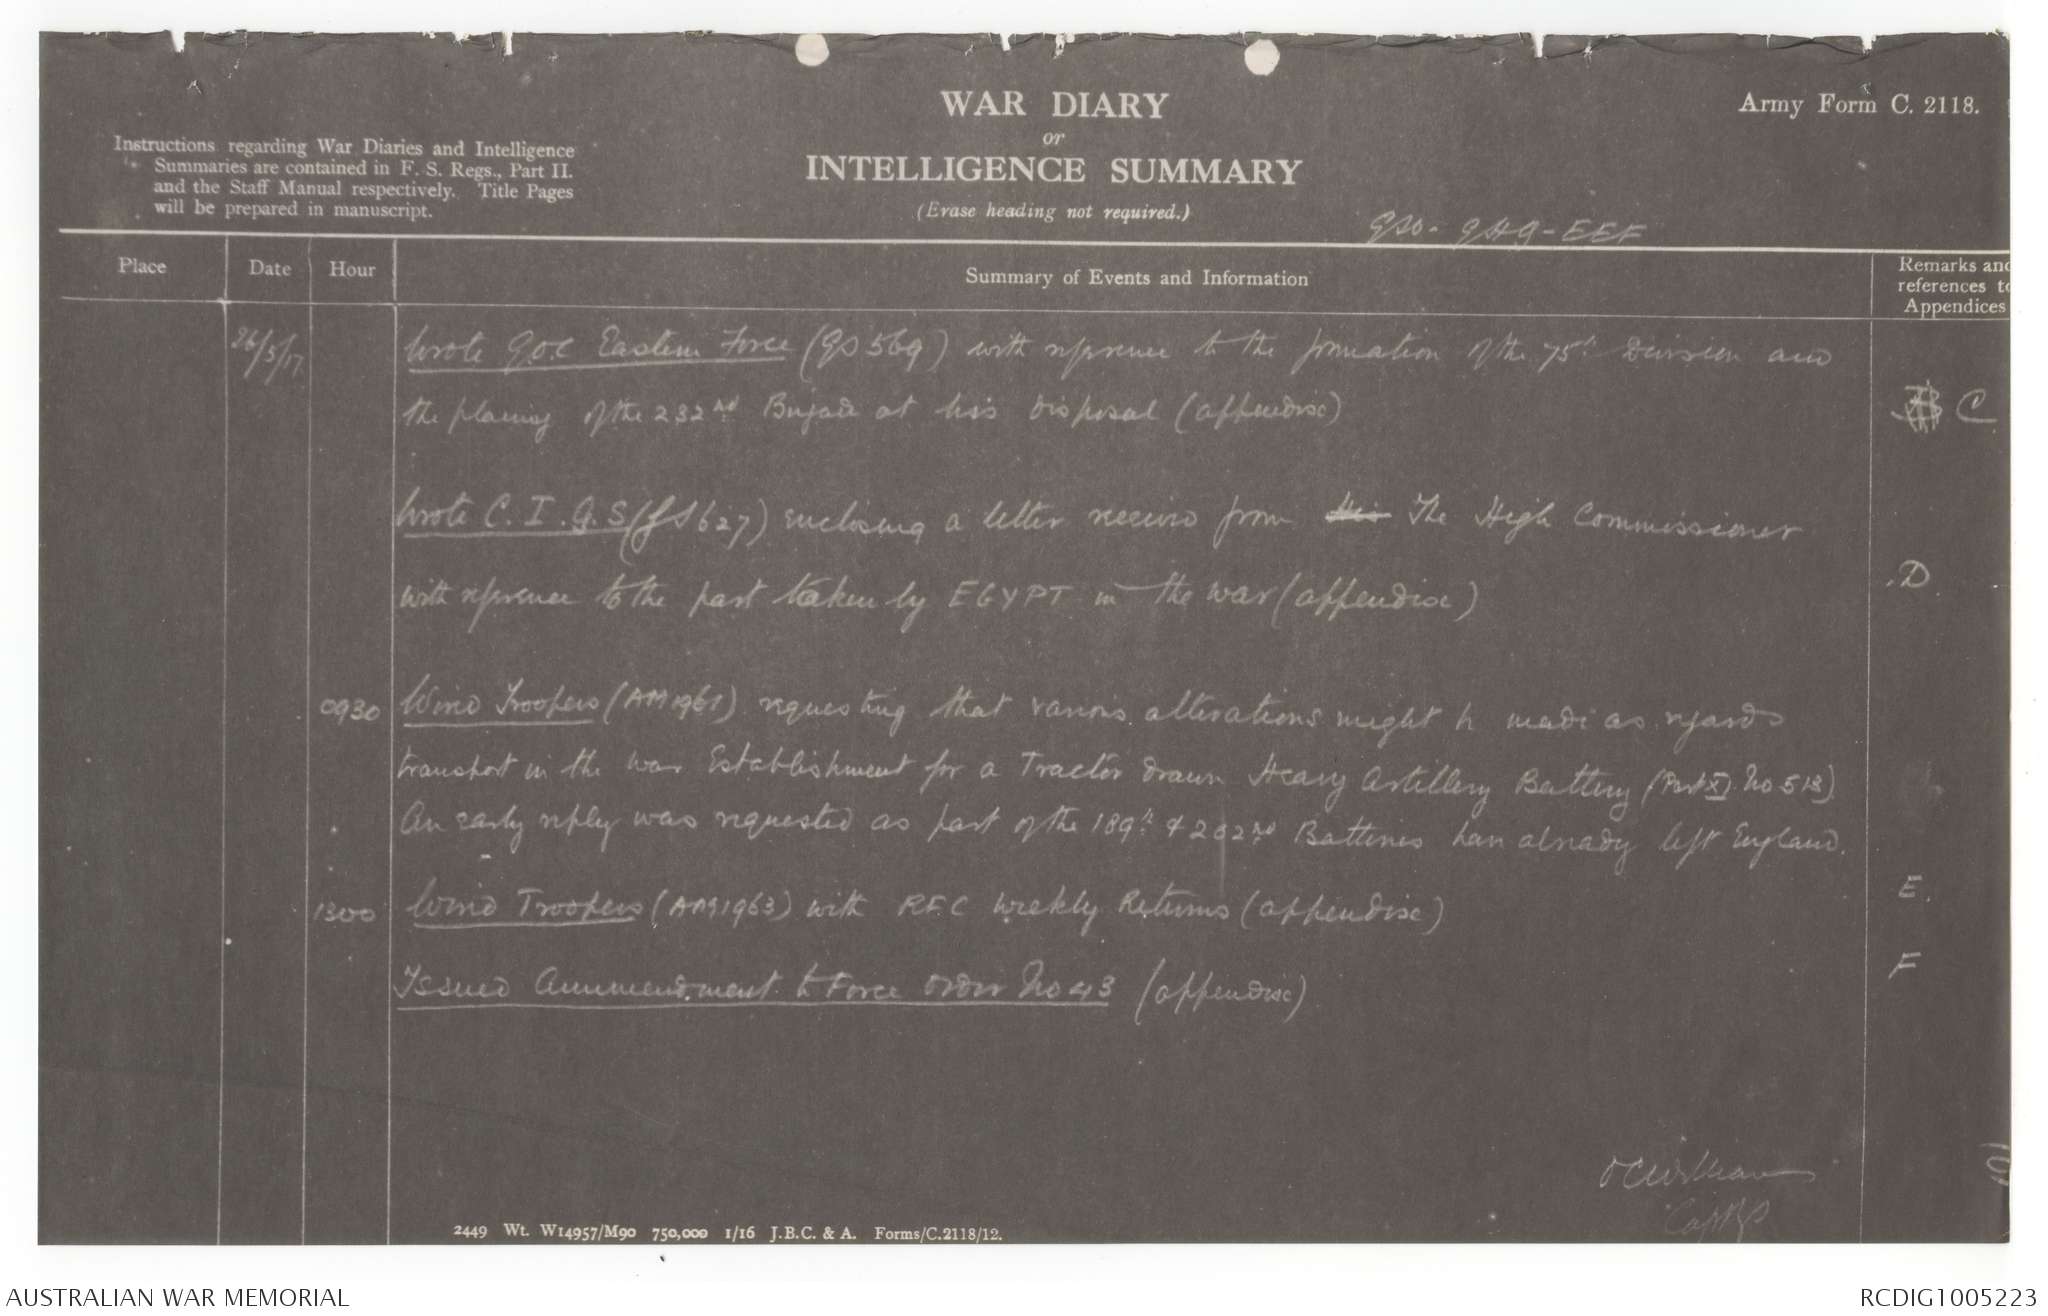 WAR DIARY
or
INTELLIGENCE SUMMARY
(Erase heading not required.)
Army Form C. 2118.
Instructions regarding War Diaries and Intelligence
Summaries are contained in F. S. Regs., Part II.
and the Staff Manual respectively. Title Pages
will be prepared in manuscript.
GHQ - EEF
Place Date Hour Summary of Events and Information Remarks and references to Appendices
26/5/17 Wrote G.O.C Eastern Force (GS 569) with reference to the formation of the 75th Division and
the placing of the 232nd Brigade at his disposal (appendix) C
Wrote C.I.G.S ( 627) enclosing a letter received from The High Commissioner
with reference to the part taken by EGYPT in the war (appendix) D
0930 Wired Troopers (AM1961) requesting that various alterations might be made as regards
transport in the War Establishment for a Tractor drawn Heavy Artillery Battery (Part X No 513)
An early reply was requested as part of the 189th & 202nd Batteries have already left England.
1300 Wired Troopers (AM1963) with RFC Weekly Returns (appendix) E.
Issued Ammendment to Force Order No 43 (appendix) F
Capt
2449 Wt. W14957/M90 750,000 1/16 J.B.C. & A. Forms/C.2118/12.
AUSTRALIAN WAR MEMORIAL
RCDIG1005223